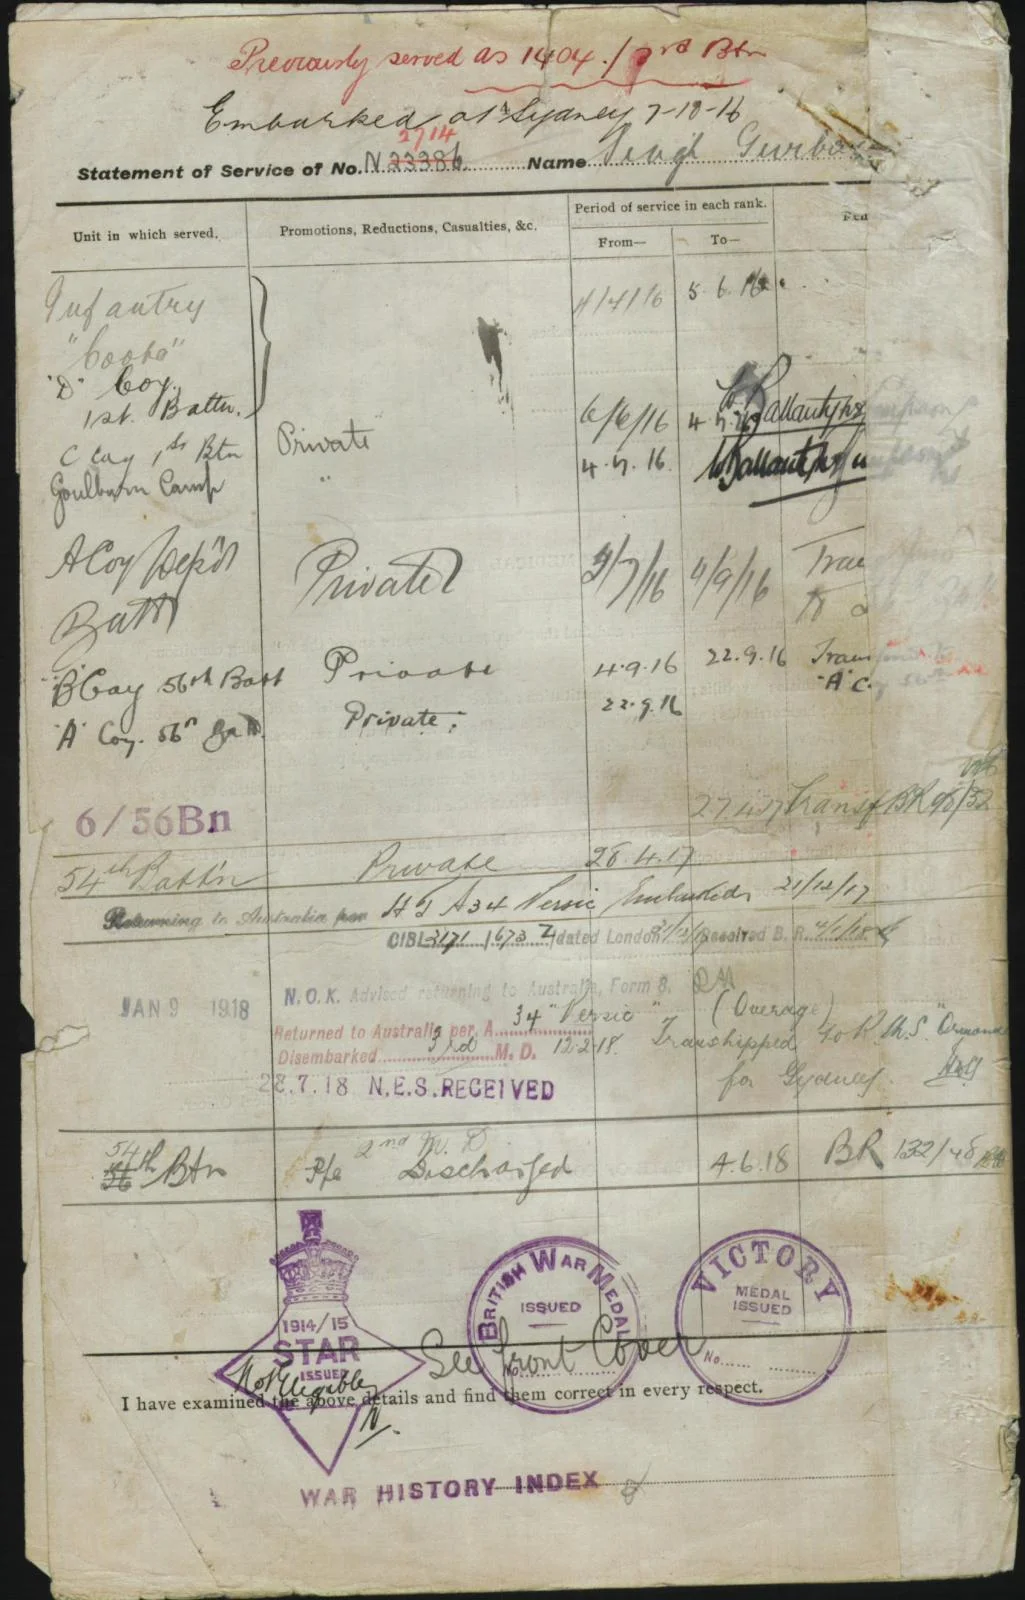 Previously served as 1404. / 3rd Btn
Embarked at Sydney 7-10-16
2714
Statement of Service of No. N 23386. Name Singh
Unit in which served. Promotions, Reductions, Casualties, &c. Period of service in each rank.
From— To—
Infantry 4/4/16 5.6.16
"Coota"
"D" Coy.
1st. Battn. 6/6/16
C Coy 1st Btn Private 4.7.16.
Goulburn Camp "
A Coy Dep't Private /7/16 4/9/16 Tran
Batt
"B" Coy 56th Batt Private 4.9.16 22.9.16
"A" Coy. 56th Private. 22.9.16
6/56Bn
54th Batt'n Private 28.4.17
Returning to Australia per H T A34 Persic Embarked 21/12/17
CIBL 3171 / 673 dated London Received B.R. 4/1/18
JAN 9 1918 N.O.K. Advised returning to Australia, Form 8.
Returned to Australia per A 34 "Persic" (Overage)
Disembarked 3rd M.D. 12.2.18. Transhipped to R.M.S. "Ormonde
for Sydney
28.7.18 N.E.S. RECEIVED
2nd M.D.
54th Btn Pte Discharged 4.6.18 BR 132/48
56
1914/15 STAR ISSUED
Not Eligible
BRITISH WAR MEDAL ISSUED No.
VICTORY MEDAL ISSUED No.
See front Cover
I have examined the above details and find them correct in every respect.
WAR HISTORY INDEX